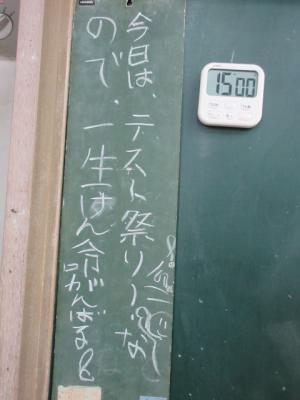 今日は、テスト祭りーな
ので、一生けん命がんばる
15:00